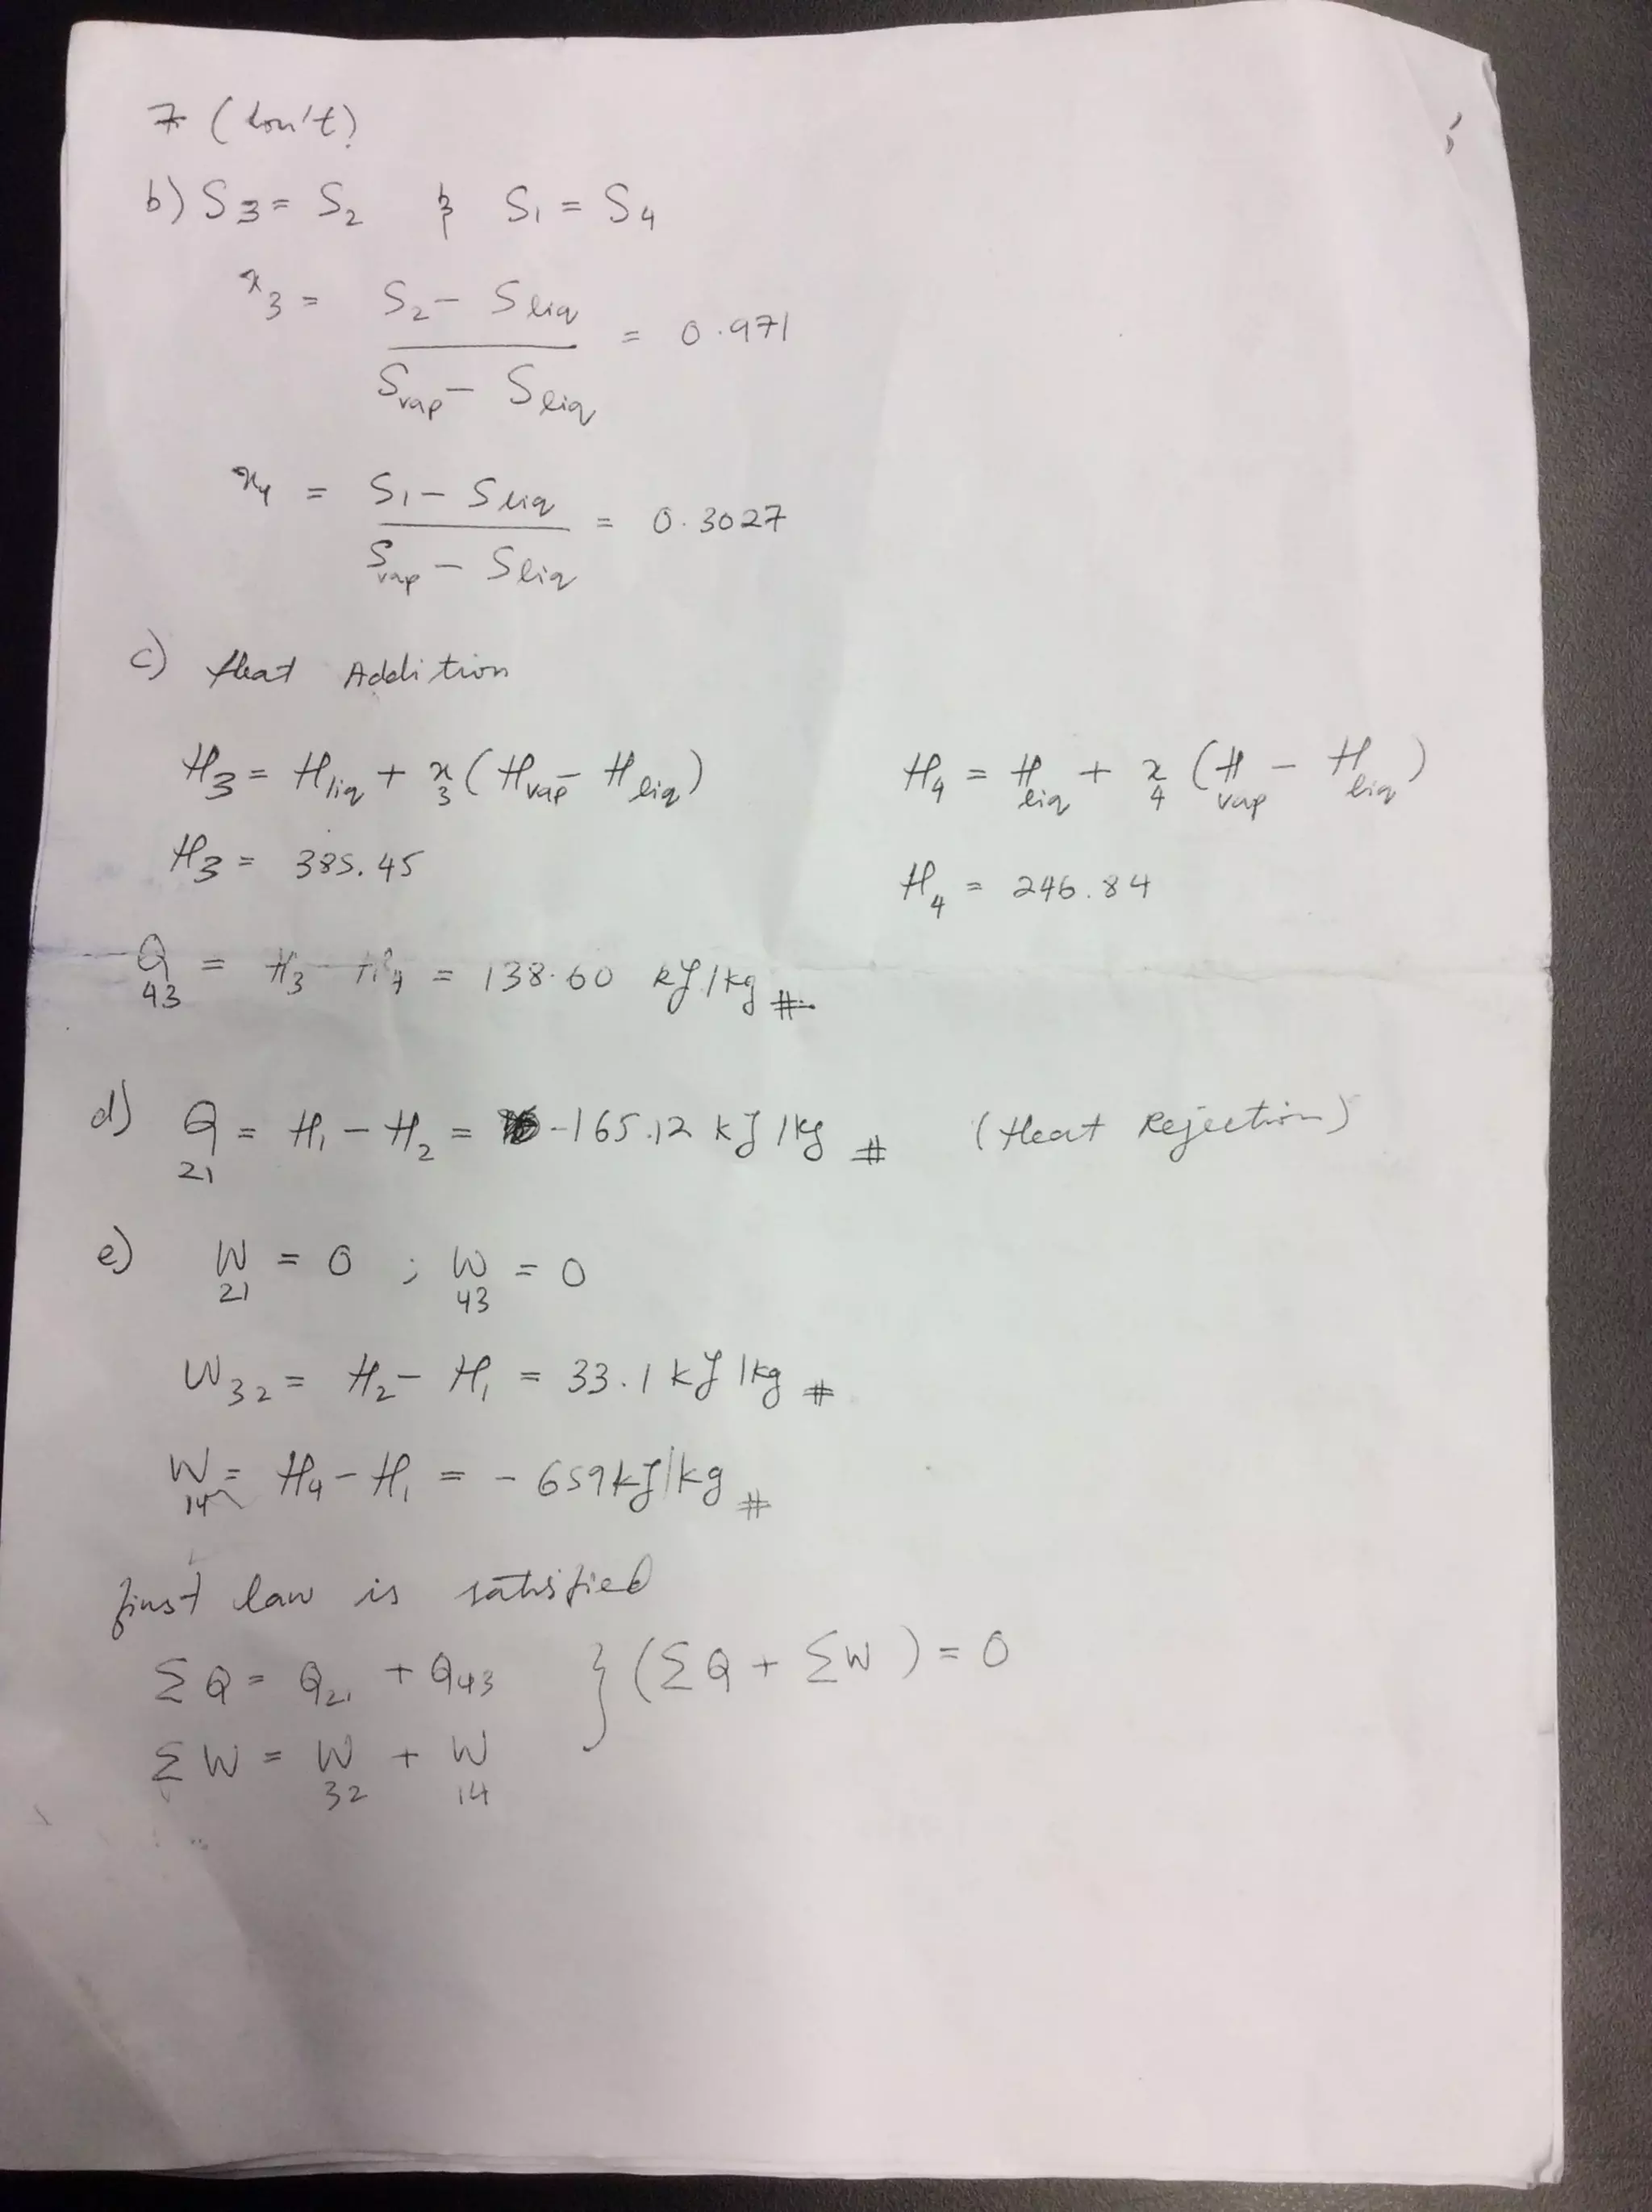 7 (Con't)
b) S3 = S2 & S1 = S4
x3 = S2 - Sliq / Svap - Sliq = 0.971
x4 = S1 - Sliq / Svap - Sliq = 0.3027
c) Heat Addition
H3 = Hliq + x3 (Hvap - Hliq) H4 = Hliq + x4 (Hvap - Hliq)
H3 = 385.45 H4 = 246.84
Q43 = H3 - H4 = 138.60 kJ/kg #
d) Q21 = H1 - H2 = -165.12 kJ/kg # (Heat Rejection)
e) W21 = 0 ; W43 = 0
W32 = H2 - H1 = 33.1 kJ/kg #
W14 = H4 - H1 = - 659kJ/kg #
first law is satisfied
ΣQ = Q21 + Q43 } (ΣQ + ΣW) = 0
ΣW = W32 + W14